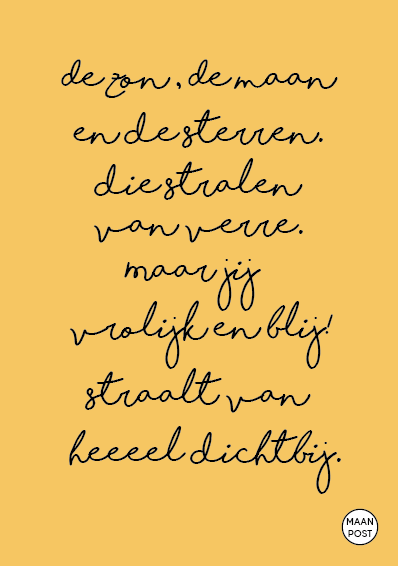 de zon, de maan
en de sterren.
die stralen
van verre.
maar jij
vrolijk en blij!
straalt van
heeeel dichtbij.
MAAN
POST